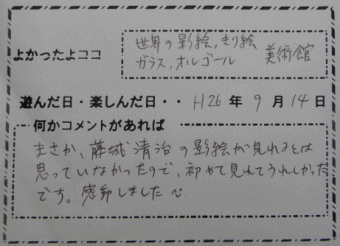 よかったよココ
世界の影絵、きり絵
ガラス、オルゴール 美術館
遊んだ日・楽しんだ日・・ H26年 9月14日
何かコメントがあれば
まさか、藤城清治の影絵が見れるとは
思っていなかったので、初めて見れてうれしかった
です。感動しました